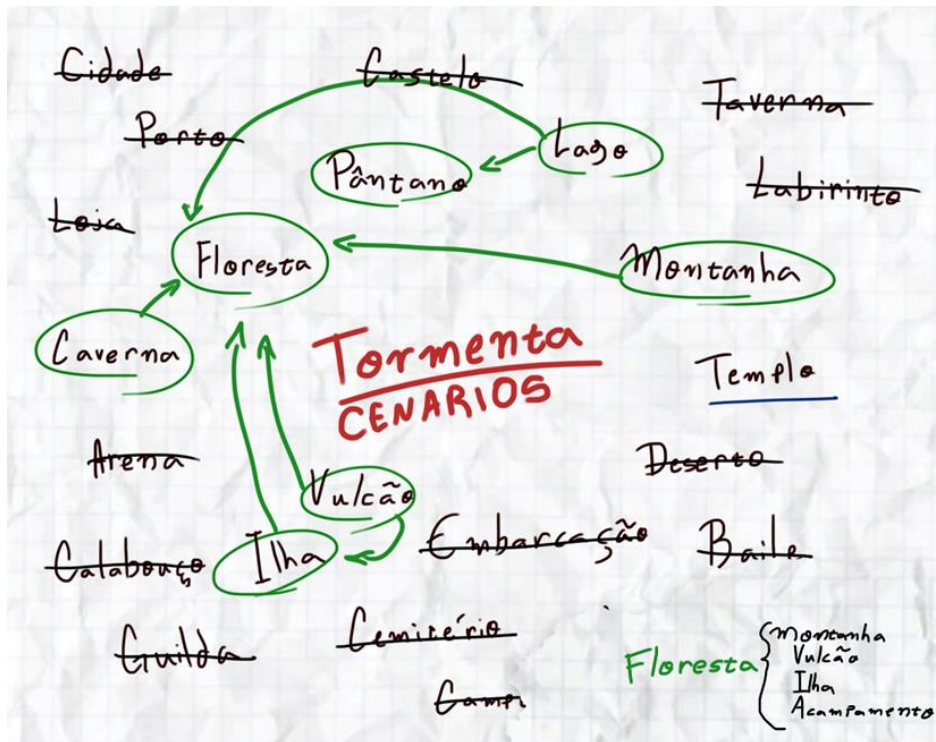 Cidade
Castelo
Taverna
Porto
Lago
Pântano
Labirinto
Loja
Floresta
Montanha
Caverna
Tormenta
CENARIOS
Templo
Arena
Deserto
Vulcão
Embarcação
Baile
Calabouço
Ilha
Guilda
Cemitério
Floresta
Montanha
Vulcão
Ilha
Acampamento